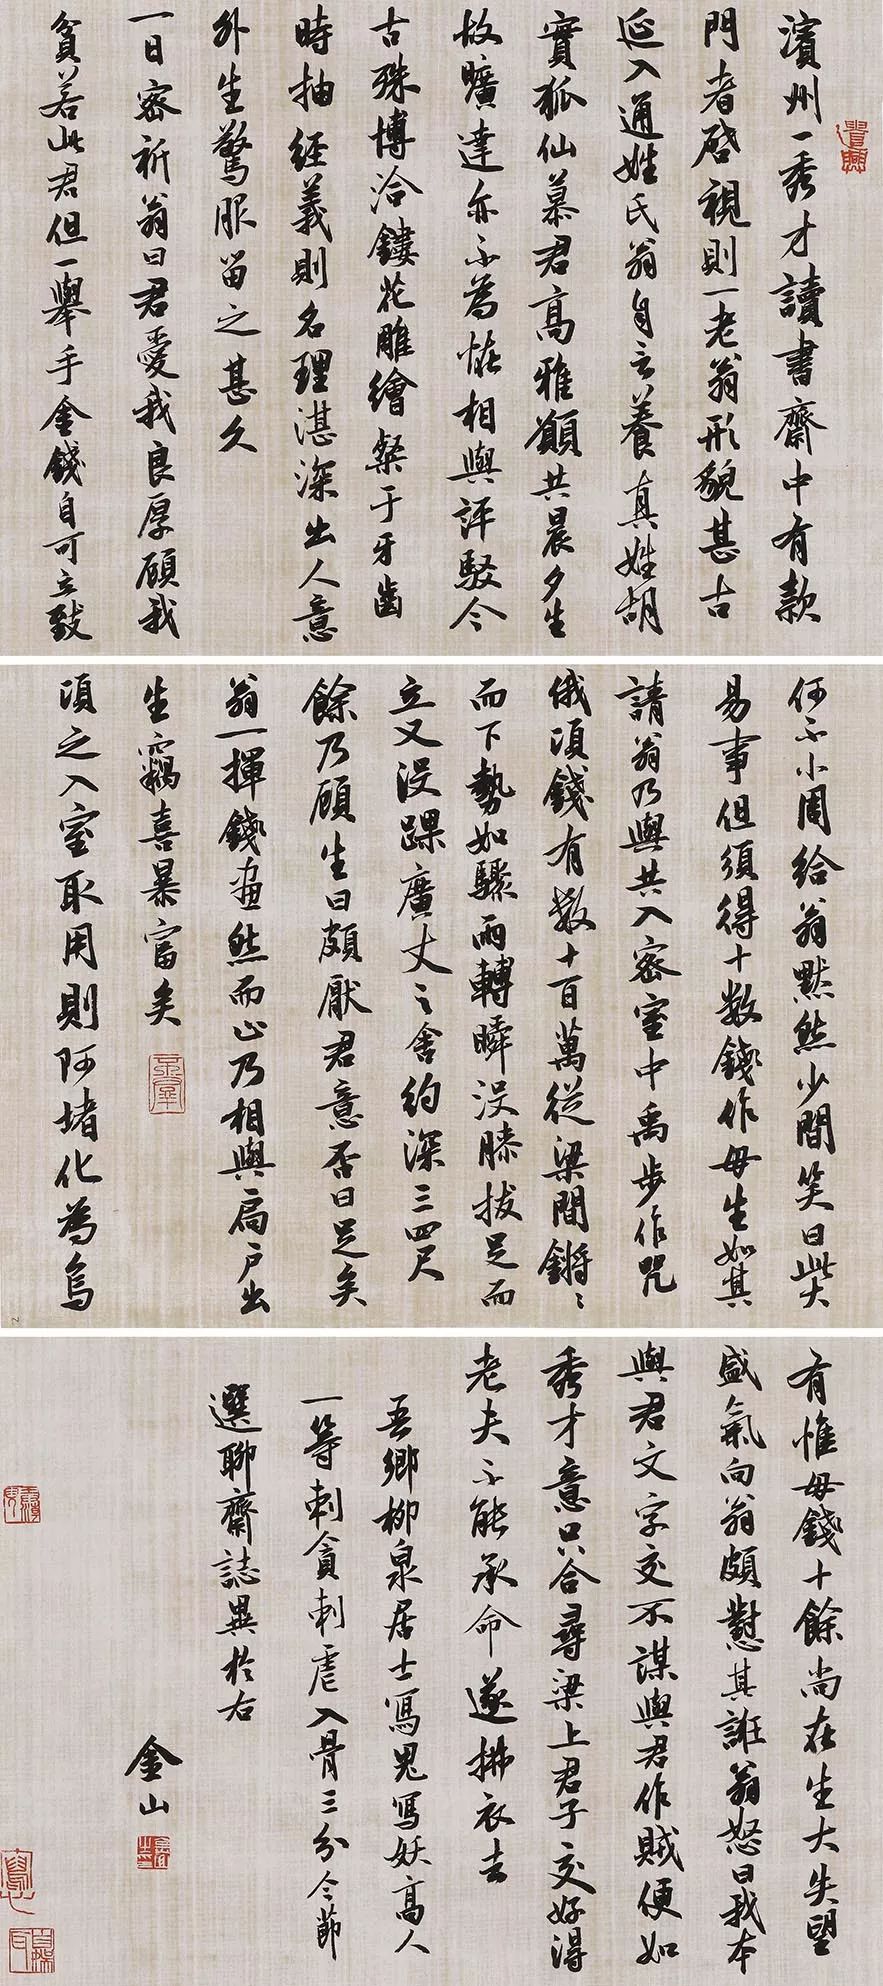 濱州一秀才讀書齋中有款
門者啓視則一老翁形貌甚古
延入通姓氏翁自言養真姓胡
實狐仙慕君高雅願共晨夕生
故曠達亦不為怪相與評駁今
古殊博洽鏤花雕繪粲于牙齒
時抽經義則名理湛深出人意
外生驚服留之甚久
一日密祈翁曰君愛我良厚顧我
貧若此君但一舉手金錢自可立致
何不小周給翁黙然少間笑曰此大
易事但須得十數錢作母生如其
請翁乃與共入密室中禹步作咒
俄頃錢有數十百萬從梁間鏘鏘
而下勢如驟雨轉瞬沒膝拔足而
立又沒踝廣丈之舍約深三四尺
餘乃顧生曰頗厭君意否曰足矣
翁一揮錢畫然而止乃相與扃戶出
生竊喜暴富矣
頃之入室取用則阿堵化為烏
有惟母錢十餘尚在生大失望
盛氣向翁頗懟其誑翁怒曰我本
與君文字交不謀與君作賊便如
秀才意只合尋梁上君子交好得
老夫不能承命遂拂衣去
吾鄉柳泉居士寫鬼寫妖高人
一等刺貪刺虐入骨三分今節
選聊齋誌異於右
金山